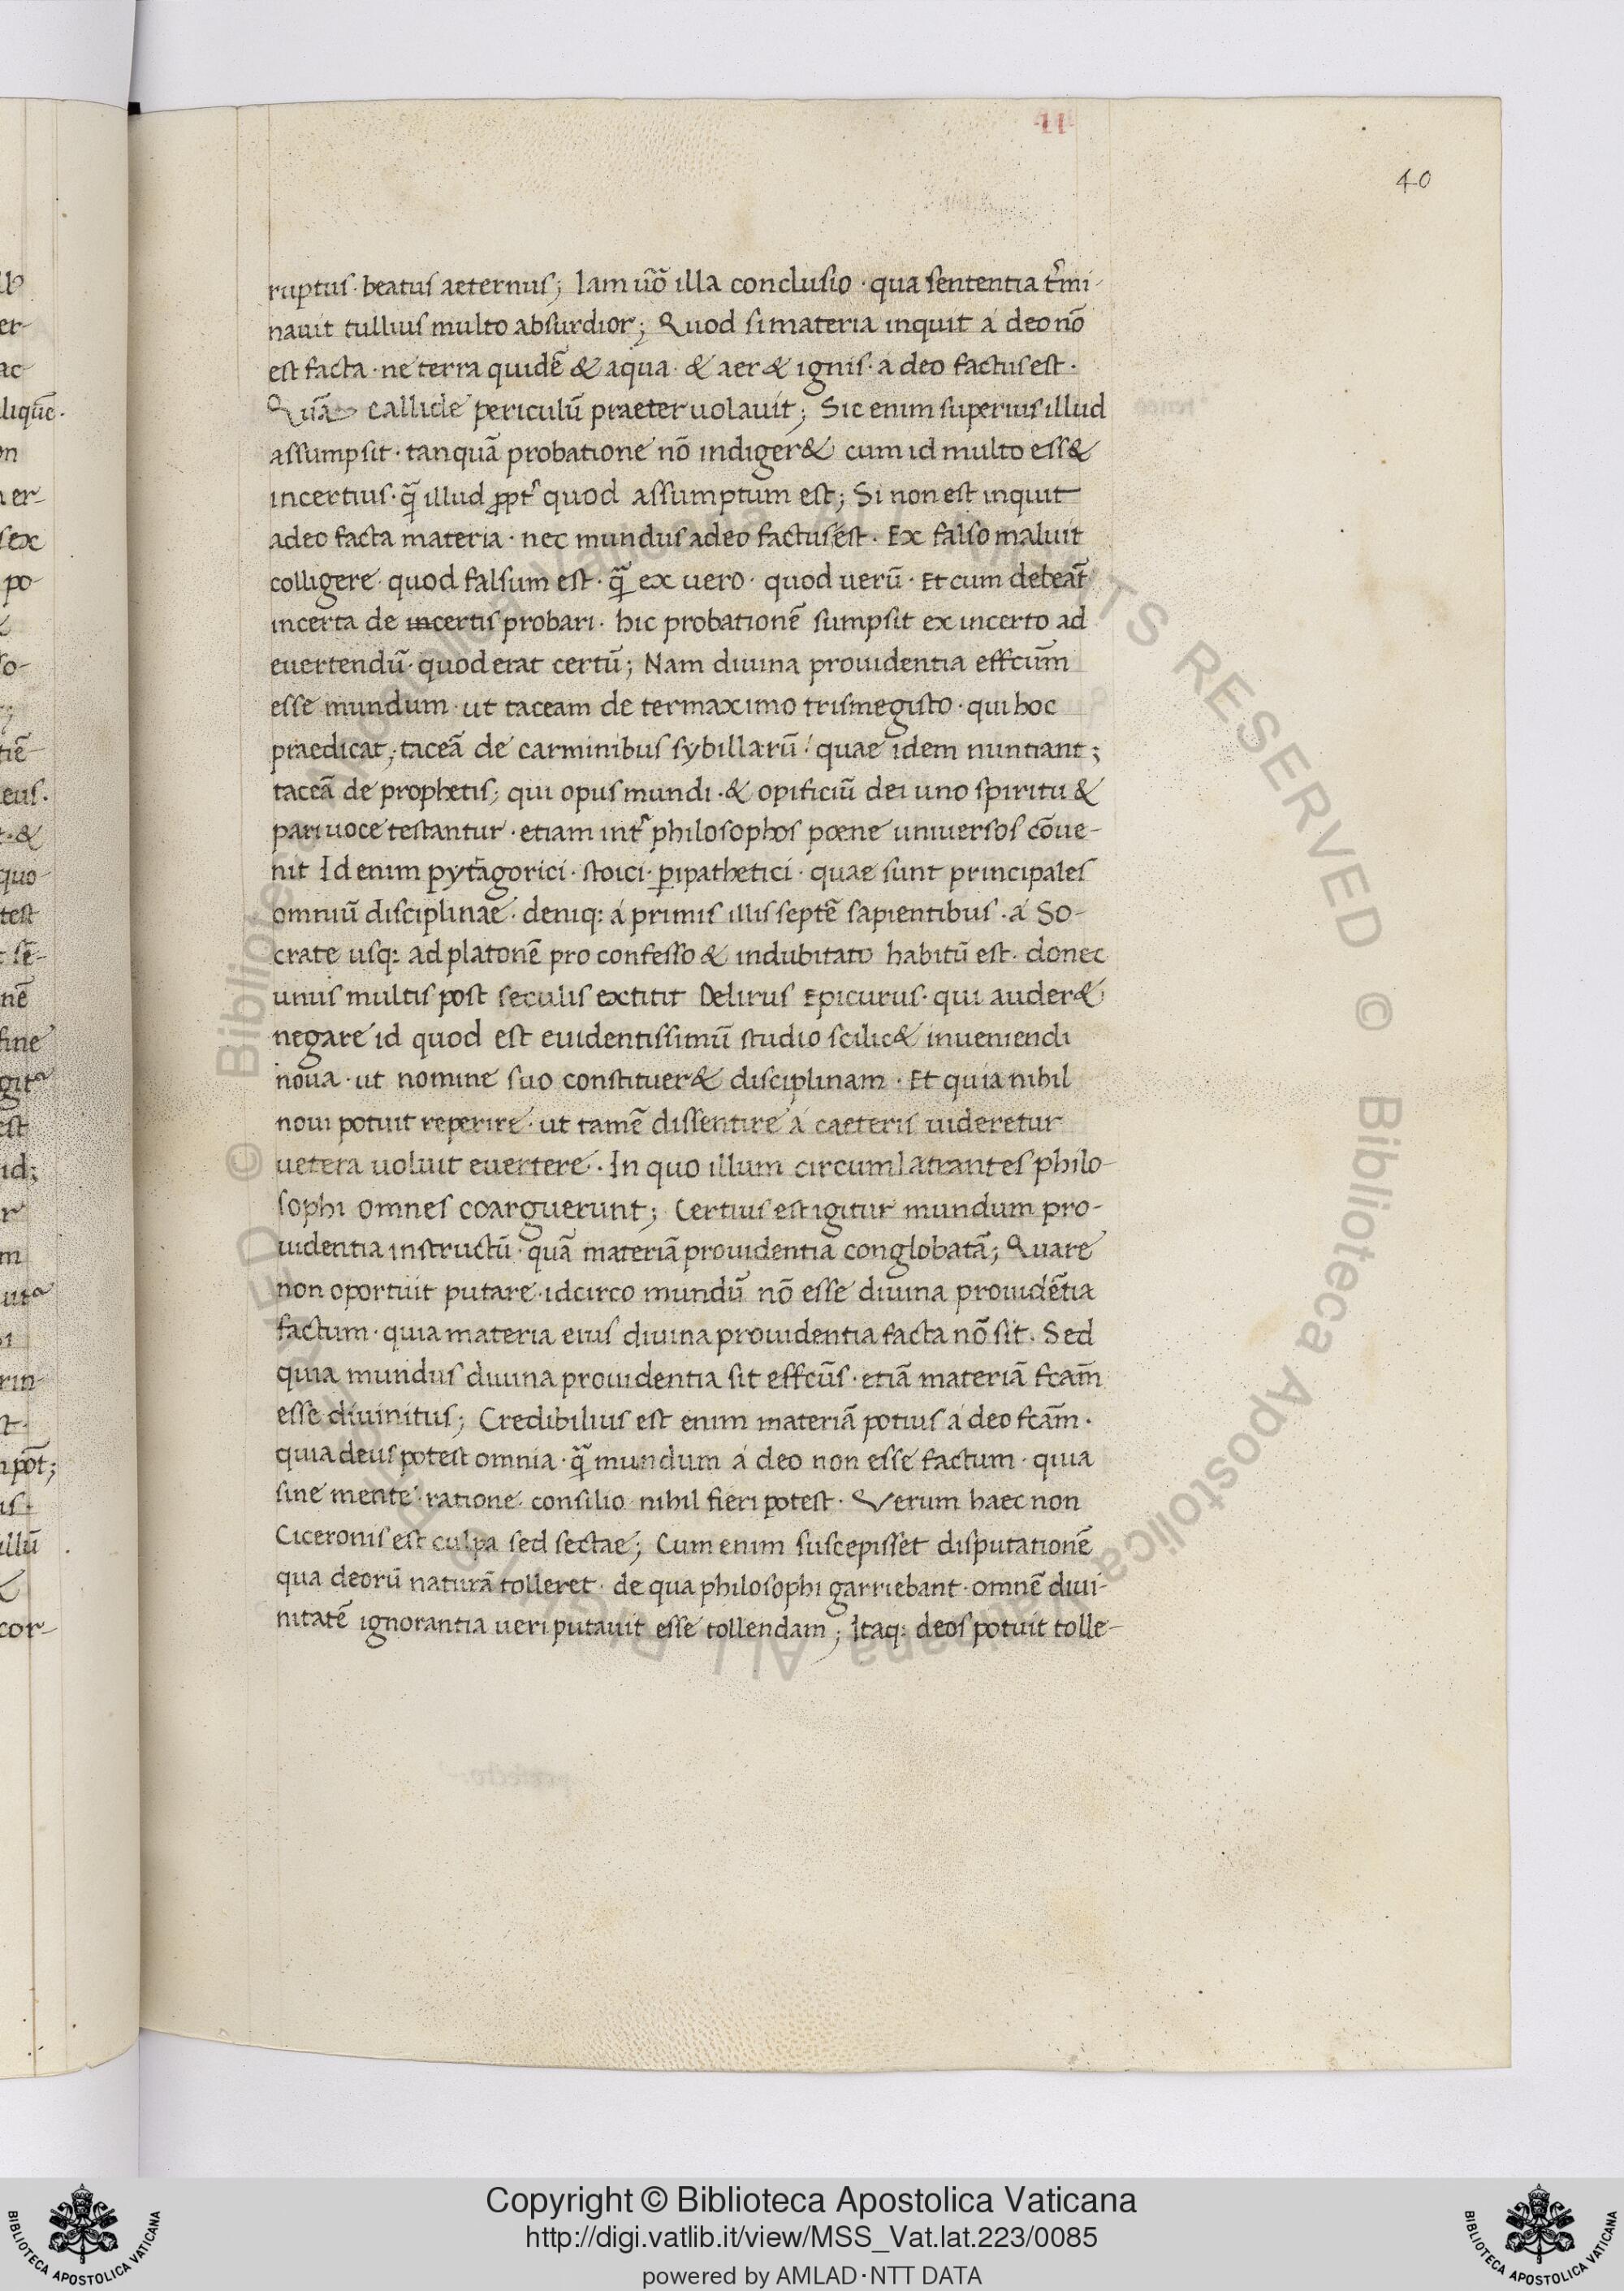 40
ruptus· beatus aeternus; Iam uō illa conclusio · qua sententia t̄mi-
nauit tullius multo absurdior; Quod si materia inquit á deo nō
est facta · ne terra quidē & aqua · & aer & ignis · a deo factus est ·
Quā callide periculū praeteruolauit; Sic enim superius illud
assumpsit · tanquā probatione nō indiger& cum id multo ess&
incertius · q̄ illud ꝓpt̄ quod assumptum est; Si non est inquit
a deo facta materia · nec mundus a deo factus est · Ex falso maluit
colligere · quod falsum est · q̄ ex uero · quod uerū · Et cum debeāt
incerta de incertis probari · hic probationē sumpsit ex incerto ad
euertendū · quod erat certū; Nam diuina prouidentia effcūm
esse mundum · ut taceam de termaximo trismegisto · qui hoc
praedicat; taceā de carminibus sybillarū · quae idem nuntiant;
taceā de prophetis; qui opus mundi · & opificiū dei uno spiritu &
pari uoce testantur · etiam int̄ philosophos poene uniuersos cōue-
nit Id enim pytagorici · stoici · ꝑipathetici · quae sunt principales
omniū disciplinae · deniq: á primis illis septē sapientibus · á So-
crate usq: ad platonē pro confesso & indubitato habitū est · donec
unus multis post seculis extitit Delirus Epicurus · qui auder&
negare id quod est euidentissimū studio scilic& inueniendi
noua · ut nomine suo constituer& disciplinam · Et quia nihil
noui potuit reperire · ut tamē dissentire á caeteris uideretur
uetera uoluit euertere · In quo illum circumlatrantes philo-
sophi omnes coarguerunt; Certius est igitur mundum pro-
uidentia instructū · quā materiā prouidentia conglobatā; Quare
non oportuit putare · idcirco mundū nō esse diuina prouidētia
factum · quia materia eius diuina prouidentia facta nō sit · Sed
quia mundus diuina prouidentia sit effcūs · etiā materiā fcām
esse diuinitus; Credibilius est enim materiā potius á deo fcām ·
quia deus potest omnia · q̄ mundum á deo non esse factum · quia
sine mente · ratione · consilio nihil fieri potest · Verum haec non
Ciceronis est culpa sed sectae; Cum enim suscepisset disputationē
qua deorū naturā tolleret · de qua philosophi garriebant · omnē diui-
nitatē ignorantia ueri putauit esse tollendam; Itaq: deos potuit tolle-
© Biblioteca Apostolica Vaticana ALL RIGHTS RESERVED © Biblioteca Apostolica Vaticana ALL RIGHTS RESERVED
Copyright © Biblioteca Apostolica Vaticana
http://digi.vatlib.it/view/MSS_Vat.lat.223/0085
powered by AMLAD·NTT DATA
BIBLIOTECA APOSTOLICA VATICANA
BIBLIOTECA APOSTOLICA VATICANA